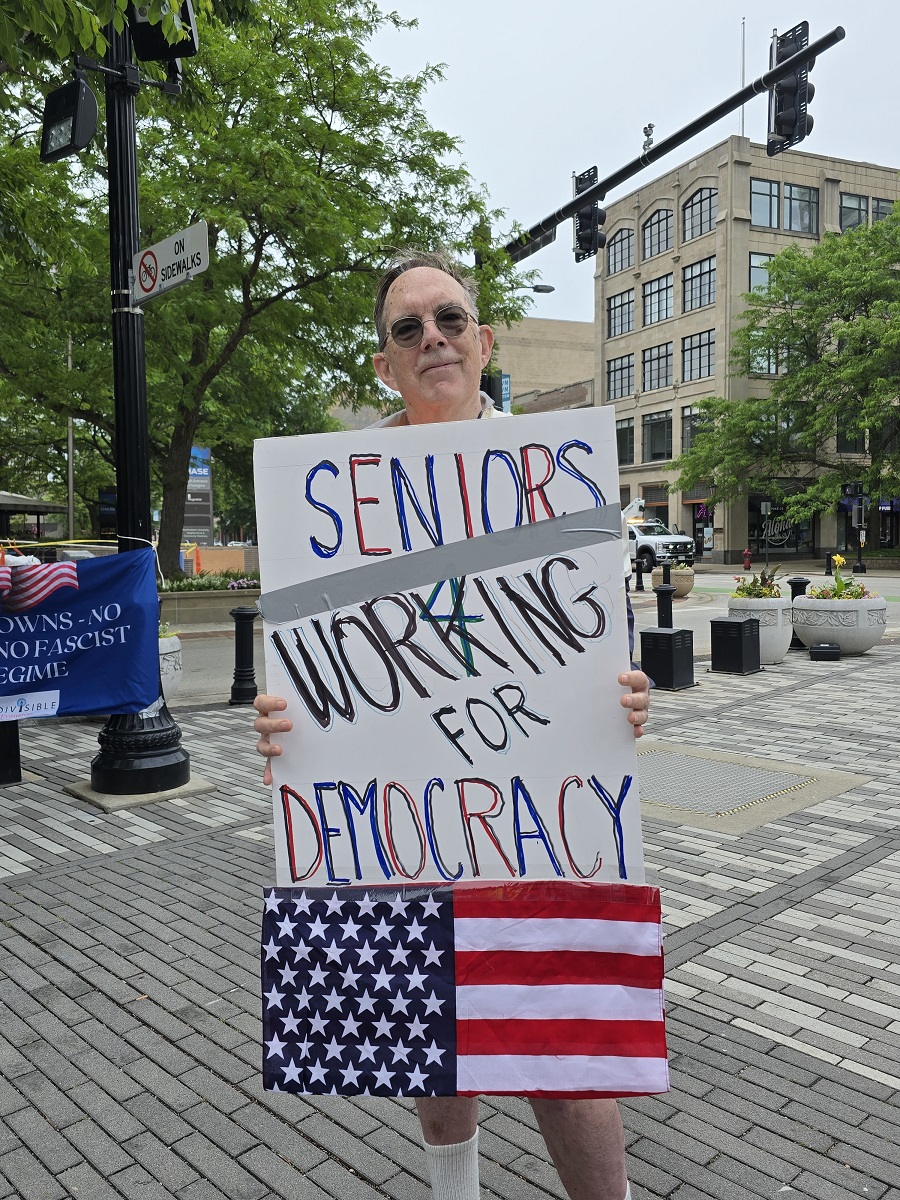 ON
SIDEWALKS
SENIORS
4
WORKING
FOR
DEMOCRACY
OWNS - NO
NO FASCIST
EGIME
DIVISIBLE